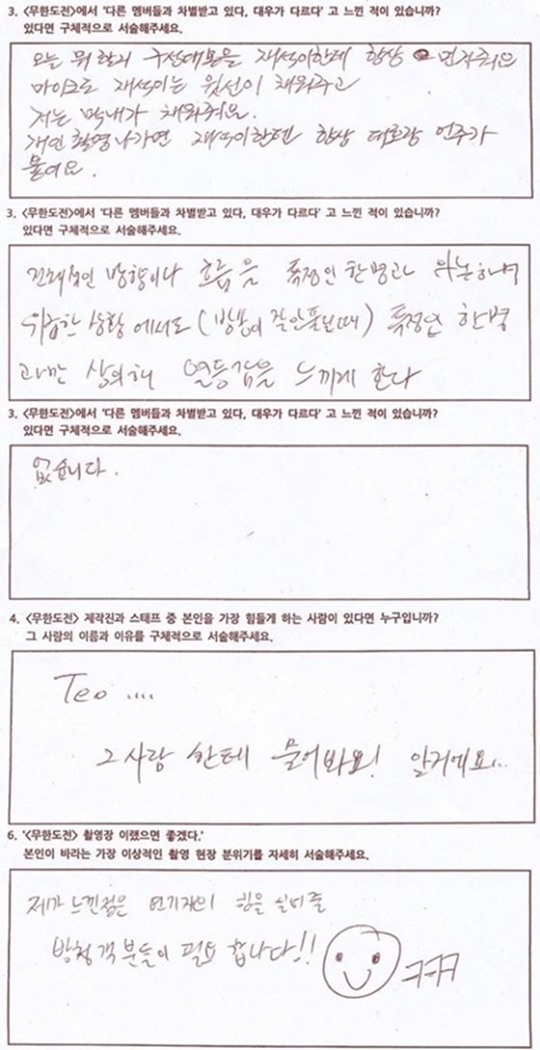 3. <무한도전>에서 '다른 멤버들과 차별받고 있다, 대우가 다르다' 고 느낀 적이 있습니까?
있다면 구체적으로 서술해주세요.
오늘 뭐 할지 구성대본을 재석이한테 항상 먼저줘요
마이크도 재석이는 윗선이 채워주고
저는 막내가 채워줘요.
개인촬영나가면 재석이한텐 항상 태호랑 언주가
붙어요.
3. <무한도전>에서 '다른 멤버들과 차별받고 있다, 대우가 다르다' 고 느낀 적이 있습니까?
있다면 구체적으로 서술해주세요.
전체적인 방향이나 흐름을 특정인 한명과 의논하며
위급한 상황 에서도 (방송이 잘안풀릴때) 특정인 한명
과만 상의해 열등감을 느끼게 한다
3. <무한도전>에서 '다른 멤버들과 차별받고 있다, 대우가 다르다' 고 느낀 적이 있습니까?
있다면 구체적으로 서술해주세요.
없습니다.
4. <무한도전> 제작진과 스태프 중 본인을 가장 힘들게 하는 사람이 있다면 누구입니까?
그 사람의 이름과 이유를 구체적으로 서술해주세요.
Teo ....
그사람 한테 물어봐요! 알거에요...
6. '<무한도전> 촬영장 이랬으면 좋겠다.'
본인이 바라는 가장 이상적인 촬영 현장 분위기를 자세히 서술해주세요.
제가 느낀점은 연기자의 힘을 실어줄
방청객 분들이 필요 합니다!! ㅋㅋㅋ